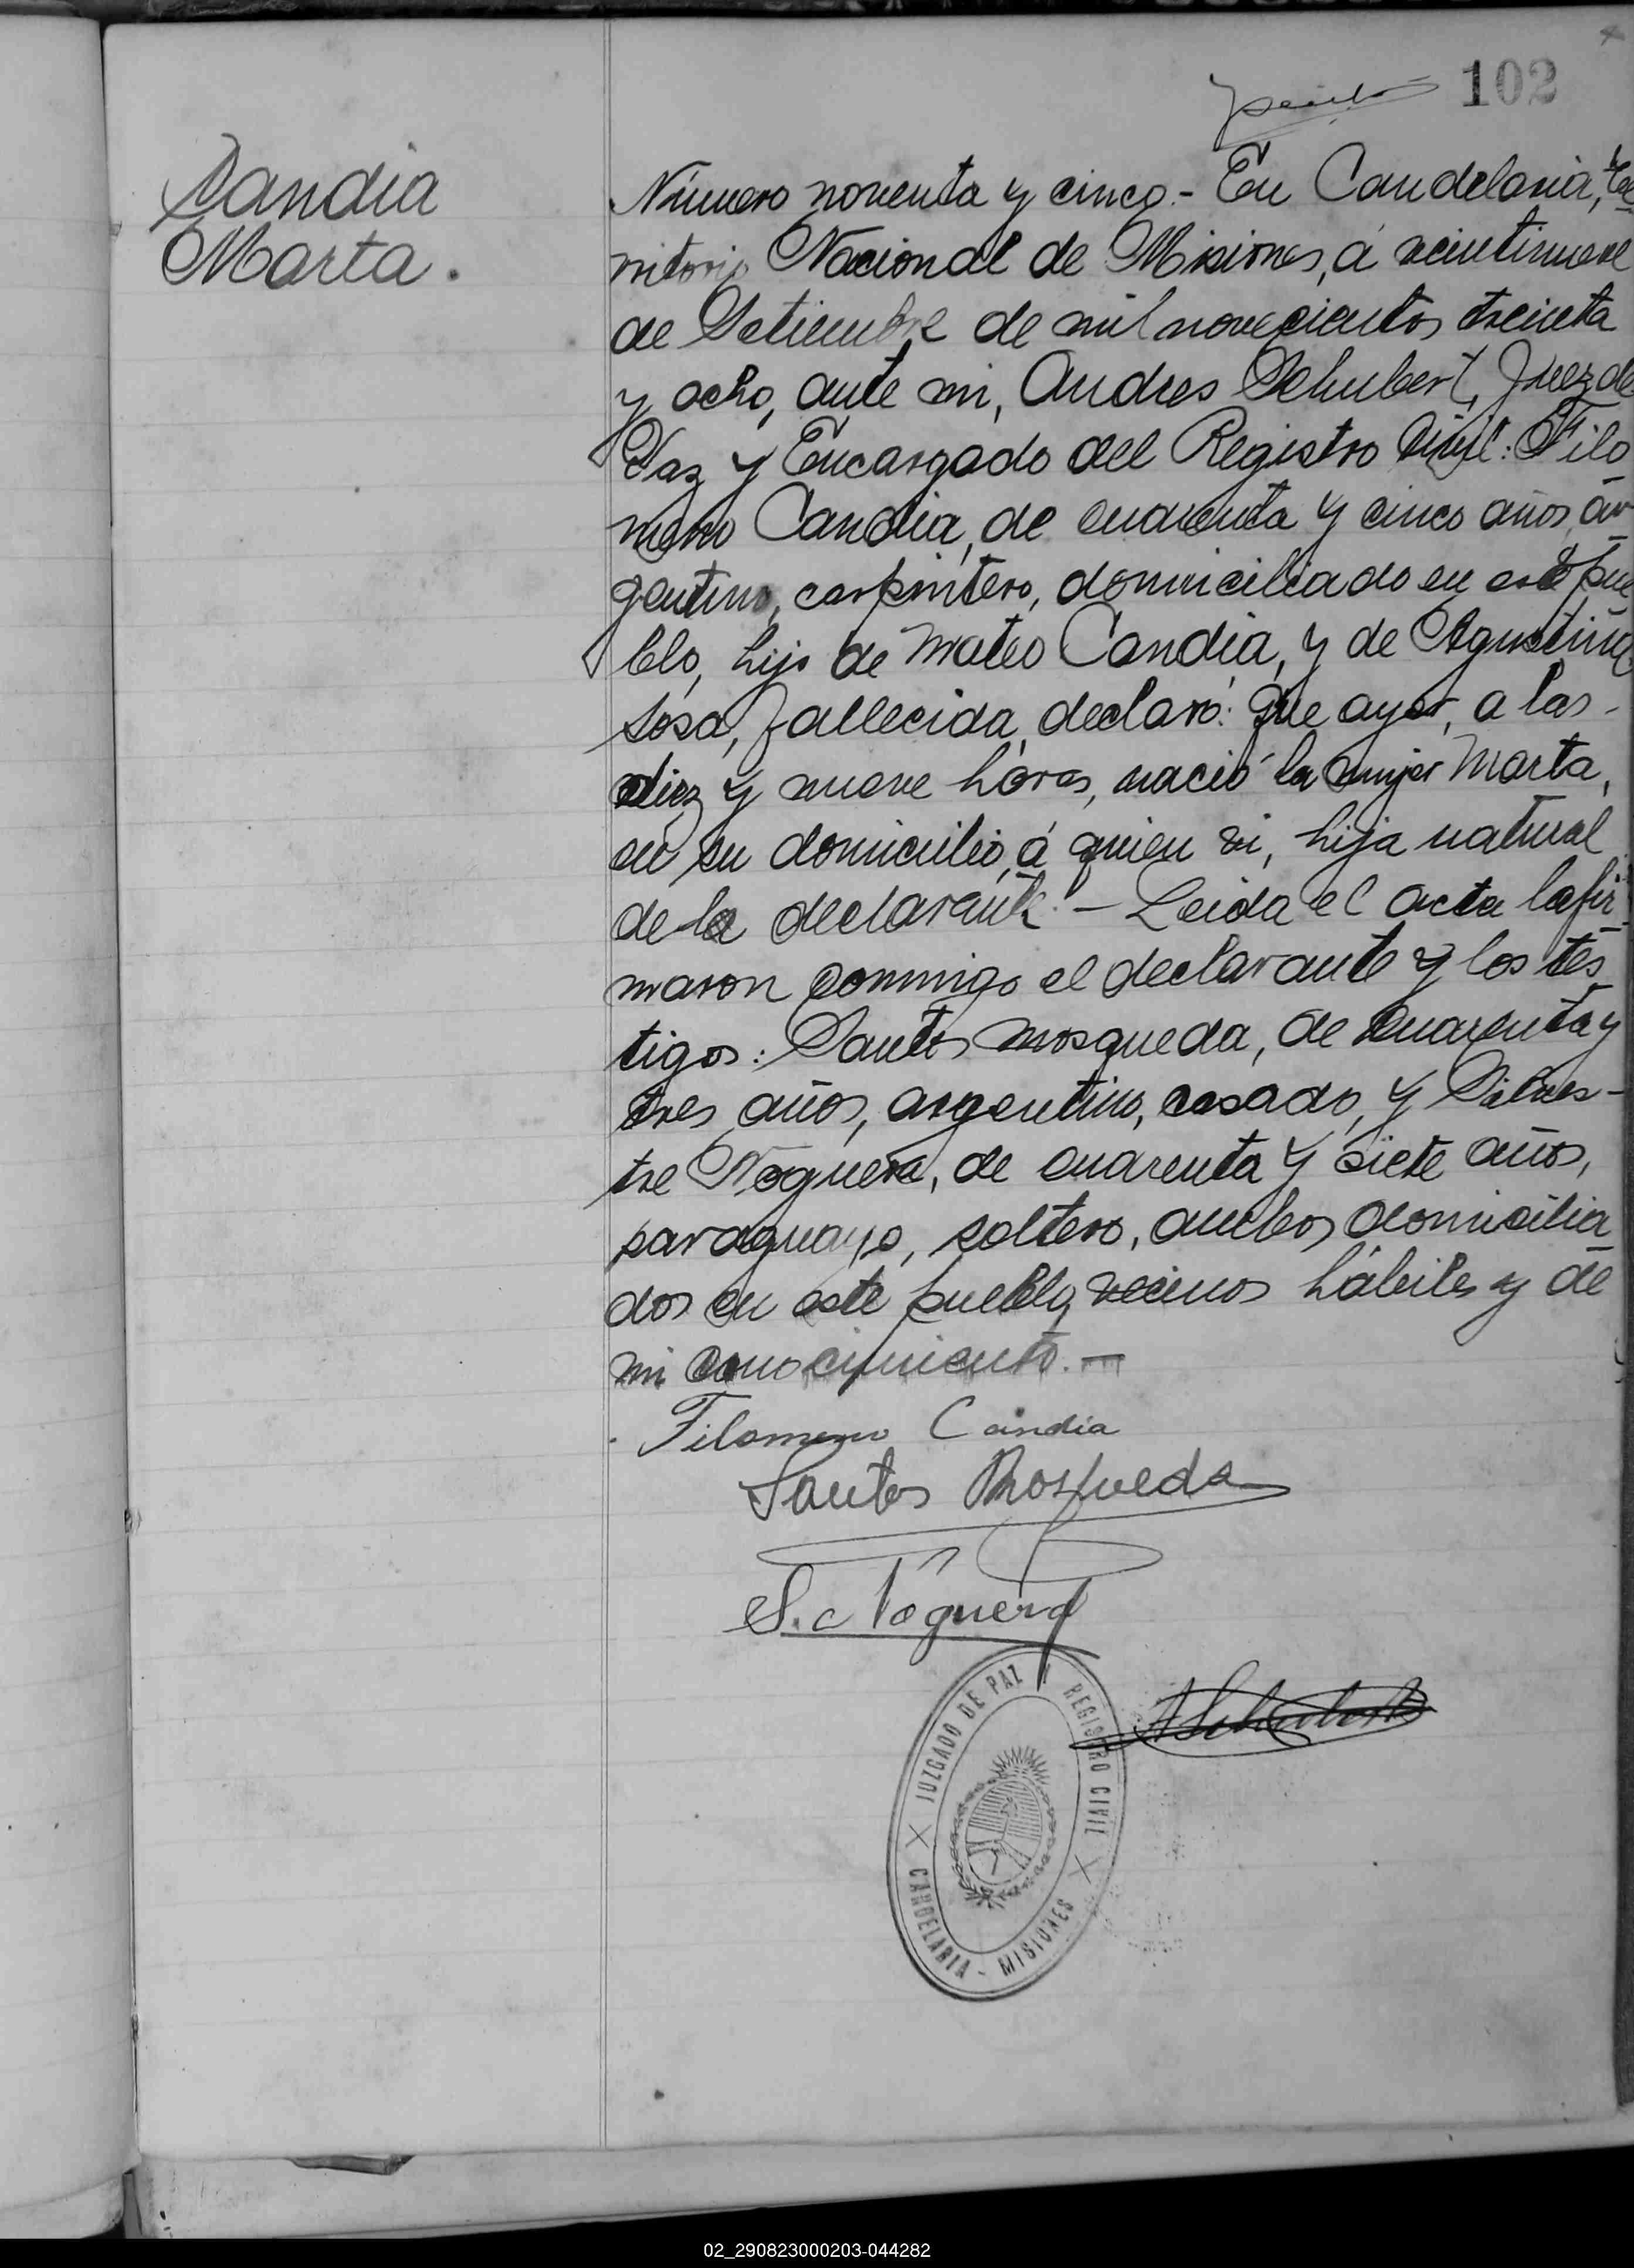 102
Candia
Marta.
Número noventa y cinco.- En Candelaria, te
rritorio Nacional de Misiones, á veintinueve
de Setiembre de mil novecientos treinta
y ocho, ante mi, Andres Schubert, Juez de
Paz y Encargado del Registro Civil: Filo
meno Candia, de cuarenta y cinco años, ar
gentino, carpintero, domiciliado en este pue
blo, hijo de Mateo Candia, y de Agustina
Sosa, fallecida, declaró: Que ayer, a las
diez y nueve horas, nació la mujer Marta,
en su domicilio, á quien vi, hija natural
de la declarante.- Leida el acta la fir
maron conmigo el declarante y los tes
tigos: Santos Mosqueda, de cuarenta y
tres años, argentino, casado, y Silves-
tre Noguera, de cuarenta y siete años,
paraguayo, soltero, ambos domicilia
dos en este pueblo, vecinos hábiles y de
mi conocimiento.-
Filomeno Candia
Santos Mosqueda
S. Noguera
ASchubert
JUZGADO DE PAZ Y REGISTRO CIVIL
CANDELARIA - MISIONES
02_290823000203-044282